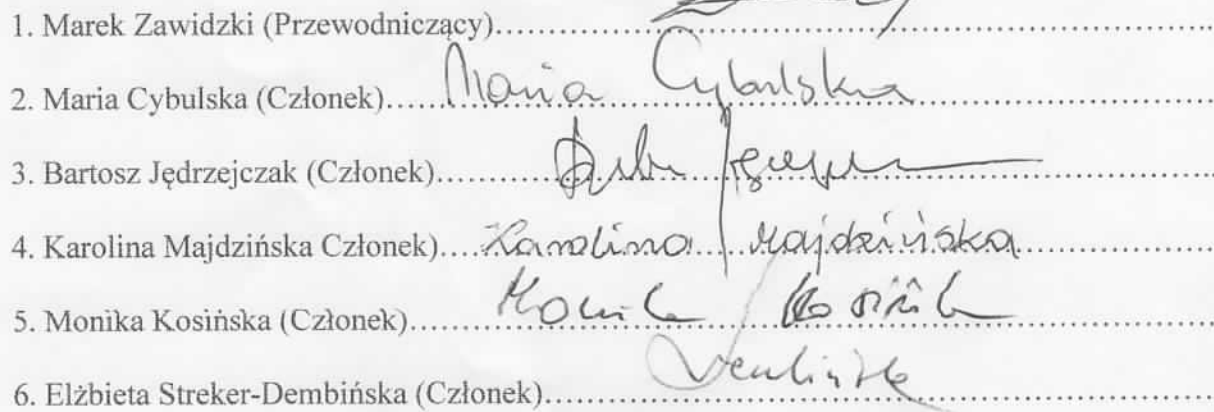 1. Marek Zawidzki (Przewodniczący)..............................
2. Maria Cybulska (Członek)..... Maria Cybulska ..............................
3. Bartosz Jędrzejczak (Członek)..............................
4. Karolina Majdzińska Członek).... Karolina Majdzińska ..............................
5. Monika Kosińska (Członek)..............................
6. Elżbieta Streker-Dembińska (Członek)..............................